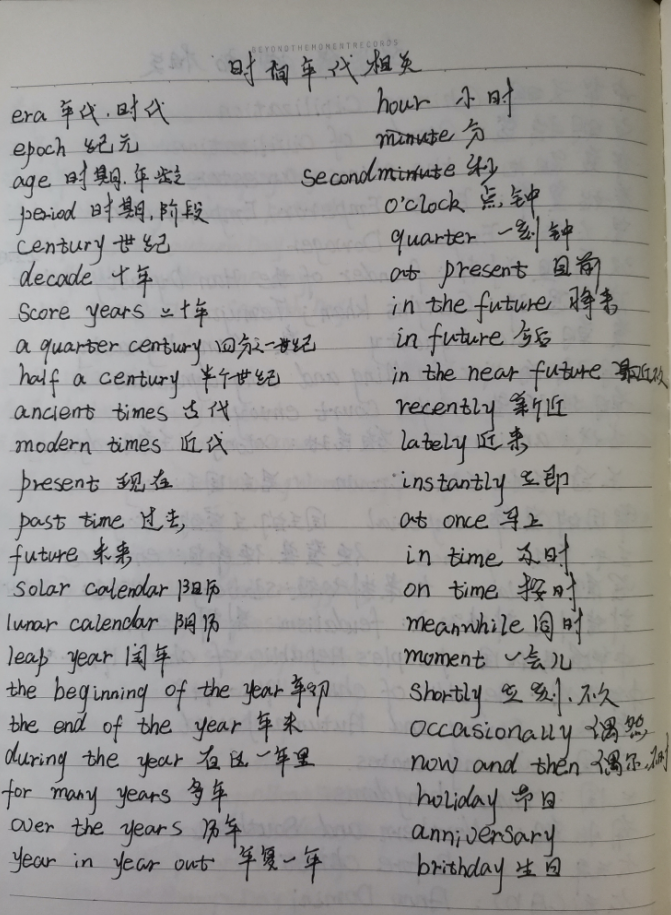 BEYONDTHEMOMENTRECORDS
时间年代相关
era 年代.时代
epoch 纪元
age 时期.年龄
period 时期.阶段
century 世纪
decade 十年
Score years 二十年
a quarter century 四分之一世纪
half a century 半个世纪
ancient times 古代
modern times 近代
present 现在
past time 过去,
future 未来
solar calendar 阳历
lunar calendar 阴历
leap year 闰年
the beginning of the year 年初
the end of the year 年末
during the year 在这一年里
for many years 多年
over the years 历年
year in year out 年复一年
hour 小时
minute 分
second minute 秒
o'clock 点钟
quarter 一刻钟
at present 目前
in the future 将来
in future 今后
in the near future 最近
recently 近
lately 近来
instantly 立即
at once 马上
in time 及时
on time 按时
meanwhile 同时
moment 一会儿
Shortly 立刻.不久
occasionally 偶然
now and then 偶尔
holiday 节日
anniversary
brithday 生日